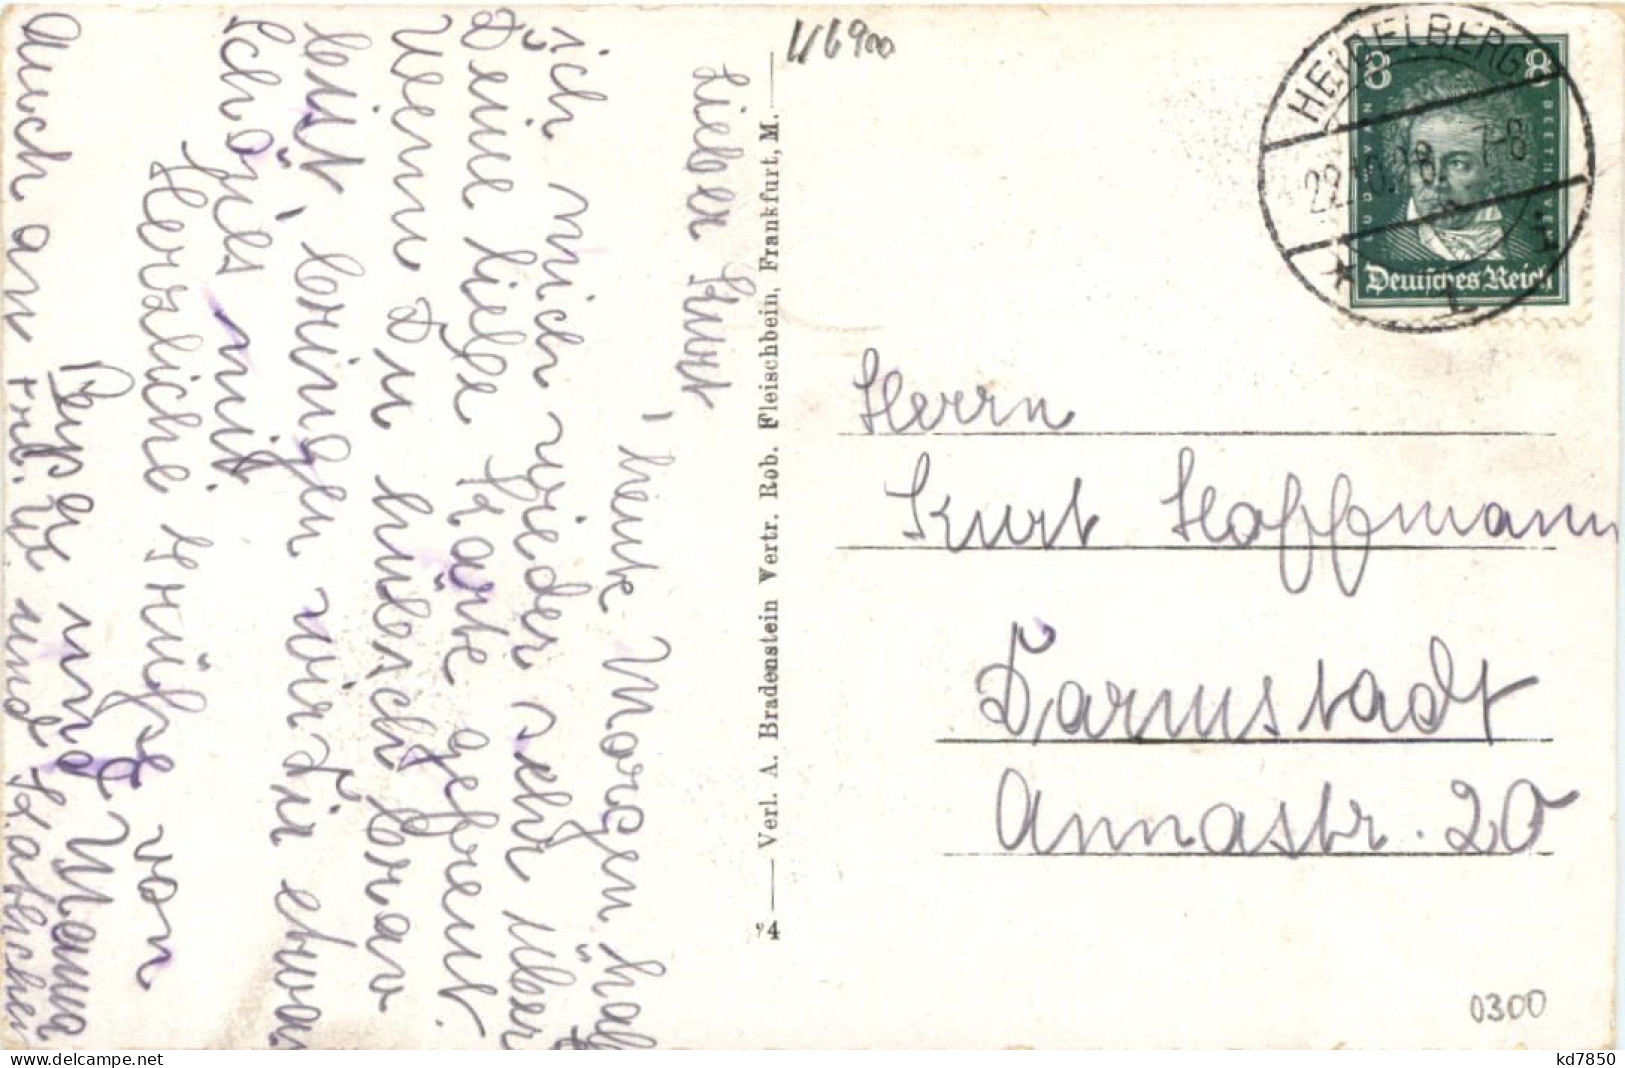 V/6900
Lieber Kurt,
heute Morgen hab
ich mich wieder sehr über
Deine liebe Karte gefreut.
Wenn Du hübsch brav
bist, bringen wir Dir etwas
schönes mit.
Herzliche Grüsse von
Papa und Mama
Auch an Frl. und Kätchen
Verl. A. Bradenstein Vertr. Rob. Fleischbein, Frankfurt, M.
74
HEIDELBERG
22.10.28. 7-8
8 8
LUDWIG VAN BEETHOVEN
Deutsches Reich
Herrn
Kurt Hoffmann
Darmstadt
Annastr. 20
0300
kd7850